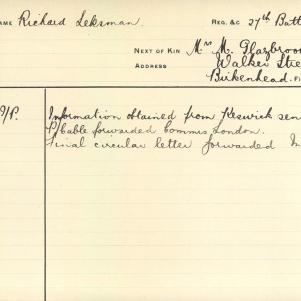 NAME Richard Leksman REG. &C 27th Batt
NEXT OF KIN Mrs M. Glazbroo
ADDRESS Walker Stre
Birkenhead.
Information obtained from Keswick sen
P/Cable forwarded Commis London.
Final circular letter forwarded